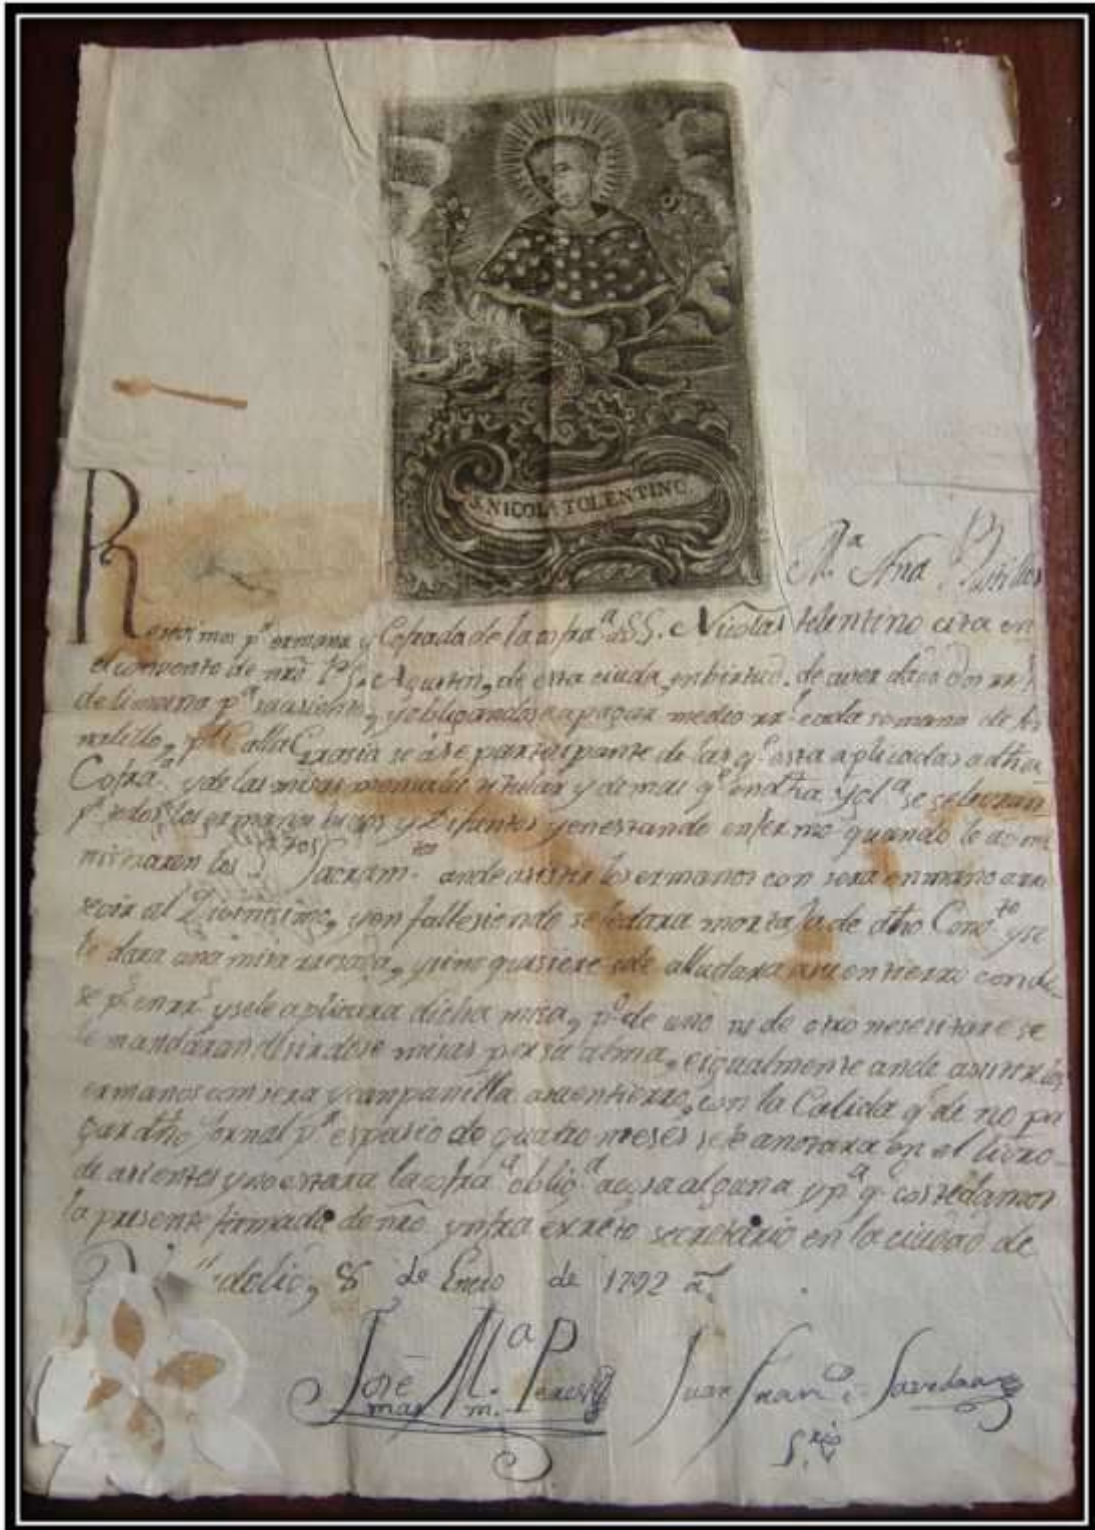 S. NICOLA TOLENTINO.
M.ª Ana Bustillos
Resevimos p.r ermana y Cofrada de la cofra.ª de SS. Nicolas tolentino cita en
el convento de nrõ P.S. Agustin, de esta ciuda, en birtud. de aver dado dos rr.s
de limosna p.ª su asiento, y obligandose a pagar medio rr.l cada semana de
p.r Calla Grasia se ase partisipante de las q.e esta aplicadas a dha
Cofra.ª y de las misas mensales titular y demas q.e en dha Ygl.ª se selebran
p.r todos los ermanos bibos y Difuntos y enestando enfermo quando le admi
nistraren los S.tos Sacram.tos an de asistir los ermanos con sera en mano a rre
sevir al Divinisimo, y en fallesiendo se le dara mortaja de dho Conv.to y se
le dara una misa rresada, y sino quisiere se le alludara a su entierro con do
se p.s en rr.s y se le aplicara dicha misa, y p.r de uno ni de otro nesesitare se
le mandaran desir dose misas por su alma, e igualmente an de asistir los
ermanos con sera y canpanilla a su entierro, con la Calida q.e de no pa
gar dho Jornal p.r espasio de quatro meses se le anotara en el livro
de asientos y no estara la cofra.ª oblig.ª a cosa alguna y p.ª q.e coste damos
la presente firmada de nrõ ynfra escreto secretario en la ciudad de
8 de Enero de 1792 a.s
José M.ª Peres
mao m.
Juan Fran.co Savedra
S.rio